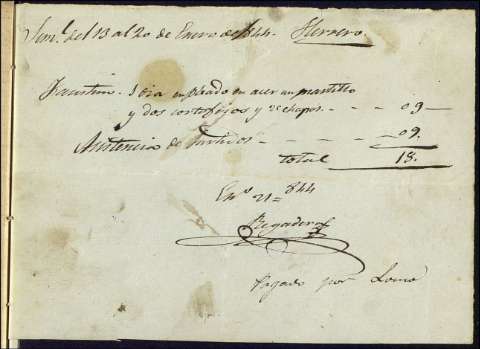 Sem.ª del 13 al 20 de Enero de 844. Herrero.
Faustino. 1 dia empleado en acer un martillo
y dos cortafrios y 2 chapas. - - - 09 -
Asistencia de - - - 09.
total 18.
En.º 21 = 844
Regadera
Pagado por